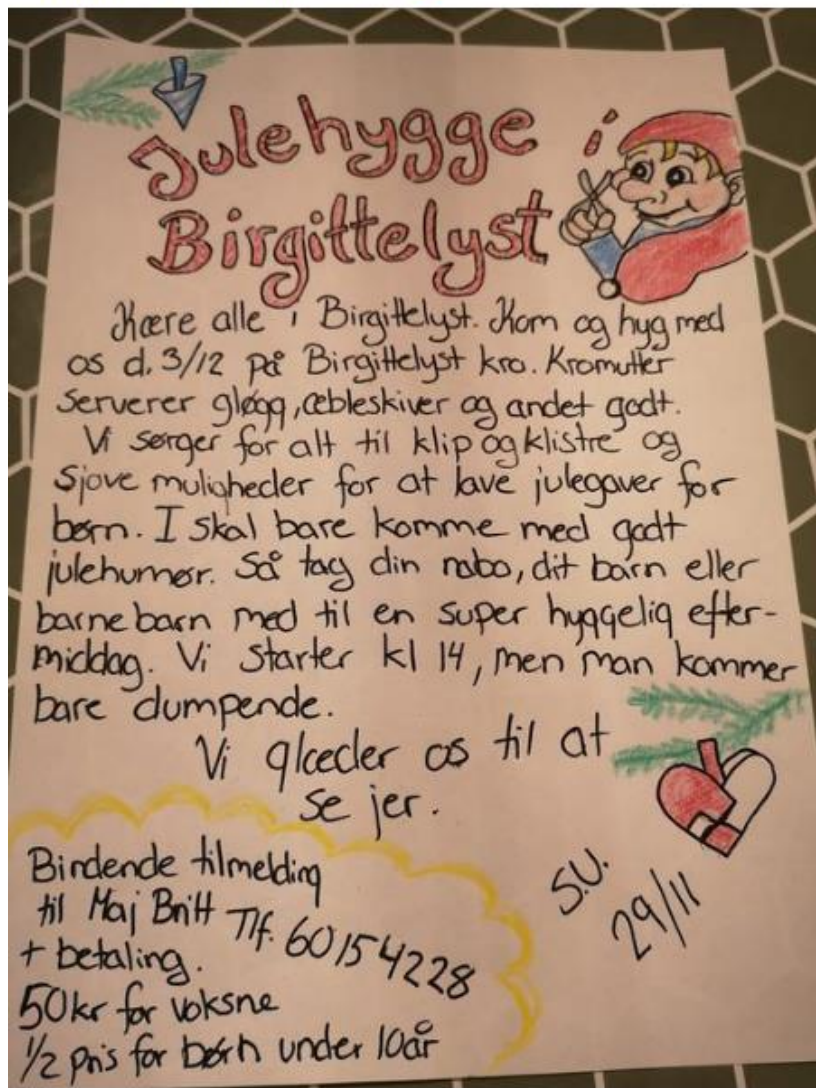 Julehygge i
Birgittelyst
Kære alle i Birgittelyst. Kom og hyg med
os d. 3/12 på Birgittelyst kro. Kromutter
serverer gløgg, æbleskiver og andet godt.
Vi sørger for alt til klip og klistre og
sjove muligheder for at lave julegaver for
børn. I skal bare komme med godt
julehumør. Så tag din nabo, dit barn eller
barnebarn med til en super hyggelig efter-
middag. Vi starter kl 14, men man kommer
bare dumpende.
Vi glæder os til at
se jer.
S.U.
29/11
Bindende tilmelding
til Maj Britt Tlf. 60154228
+ betaling.
50kr for voksne
1/2 pris for børn under 10år